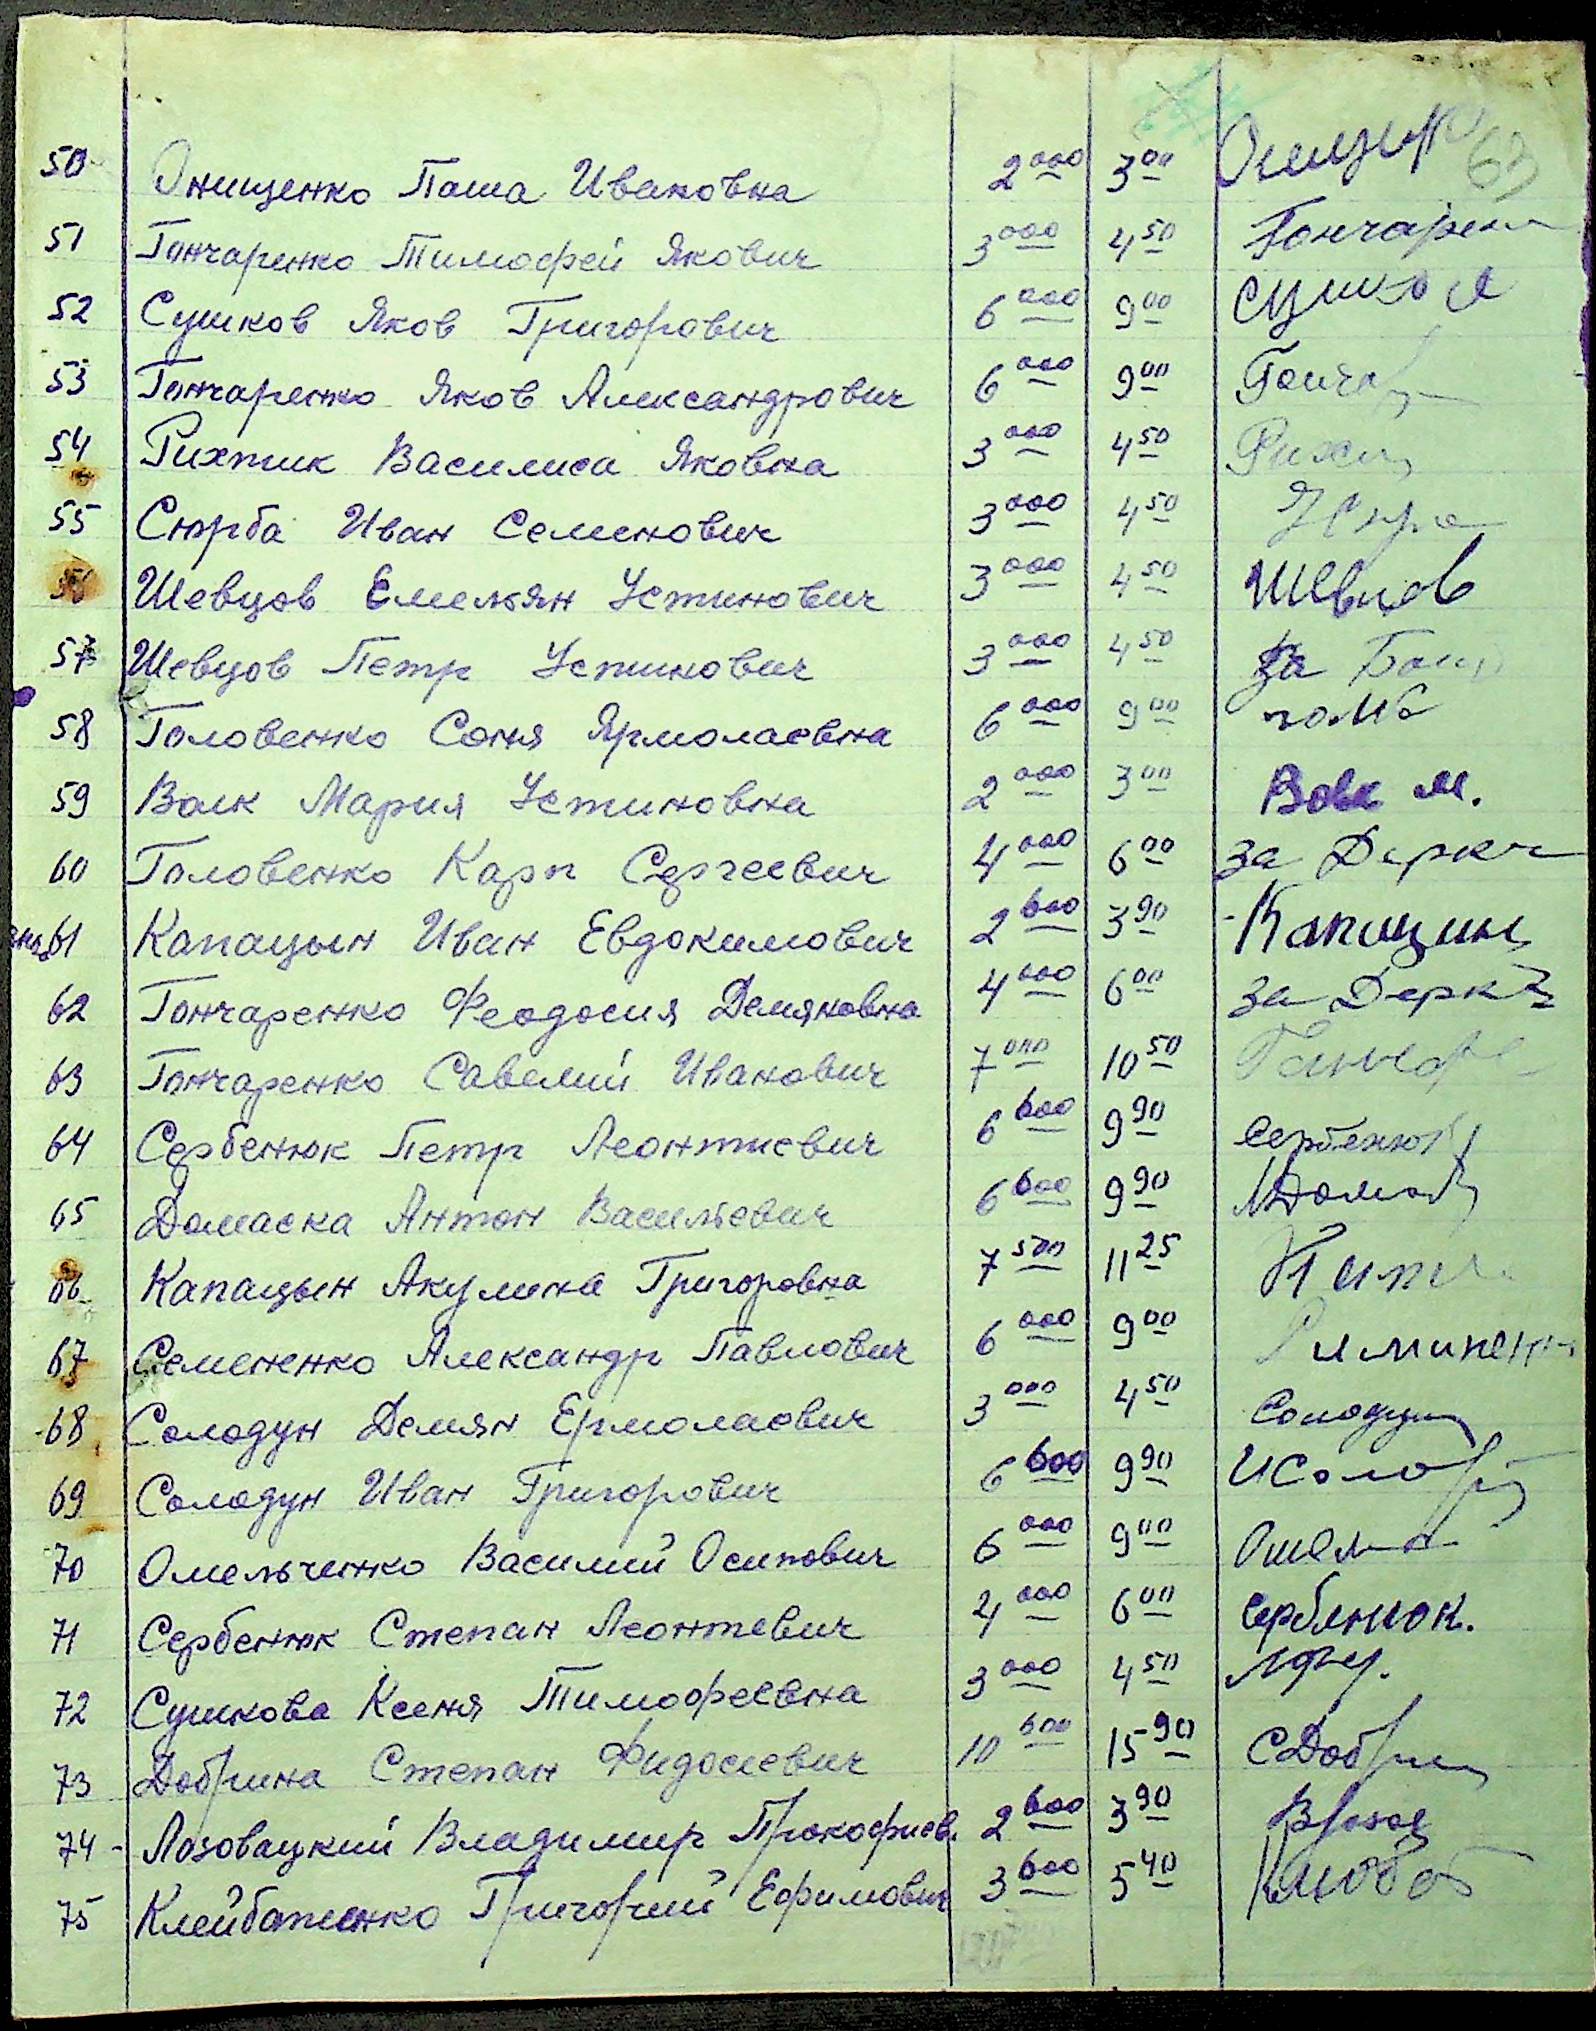 63
50 Онищенко Паша Ивановна 2000 3 00
51 Гончаренко Тимофей Якович 3000 4 50 Гончарен
52 Сушков Яков Григорович 6000 9 00 Сушко Я
53 Гончаренко Яков Александрович 6000 9 00 Гонча
54 Рихтик Василиса Яковна 3000 4 50
55 Сюрба Иван Семенович 3000 4 50
56 Шевцов Емельян Устинович 3000 4 50 Шевцов
57 Шевцов Петр Устинович 3000 4 50 за
58 Головенко Соня Ярмолаевна 6000 9 00
59 Волк Мария Устиновна 2000 3 00 Вовк М.
60 Головенко Карп Сергеевич 4000 6 00 за Деркч
61 Капацын Иван Евдокимович 2600 3 90 Капацын
62 Гончаренко Феодосия Демяновна 4000 6 00 за Деркч
63 Гончаренко Савелий Иванович 7000 10 50
64 Сербенюк Петр Леонтиевич 6600 9 90 Сербенюк
65 Домаска Антон Васильевич 6600 9 90
66 Капацын Акулина Григоровна 7500 11 25
67 Семененко Александр Павлович 6000 9 00
68 Солодун Демян Ермолаевич 3000 4 50 Солодун
69 Солодун Иван Григорович 6600 9 90 ИСоло
70 Омельченко Василий Осипович 6000 9 00
71 Сербенюк Степан Леонтевич 4000 6 00 Сербенюк.
72 Сушкова Ксеня Тимофеевна 3000 4 50
73 Добрина Степан Фидосеевич 10600 15 90 СДобрин
74 - Лозовацкий Владимир Прокофиев. 2600 3 90
75 Клейбатенко Григорий Ефимович 3600 5 40